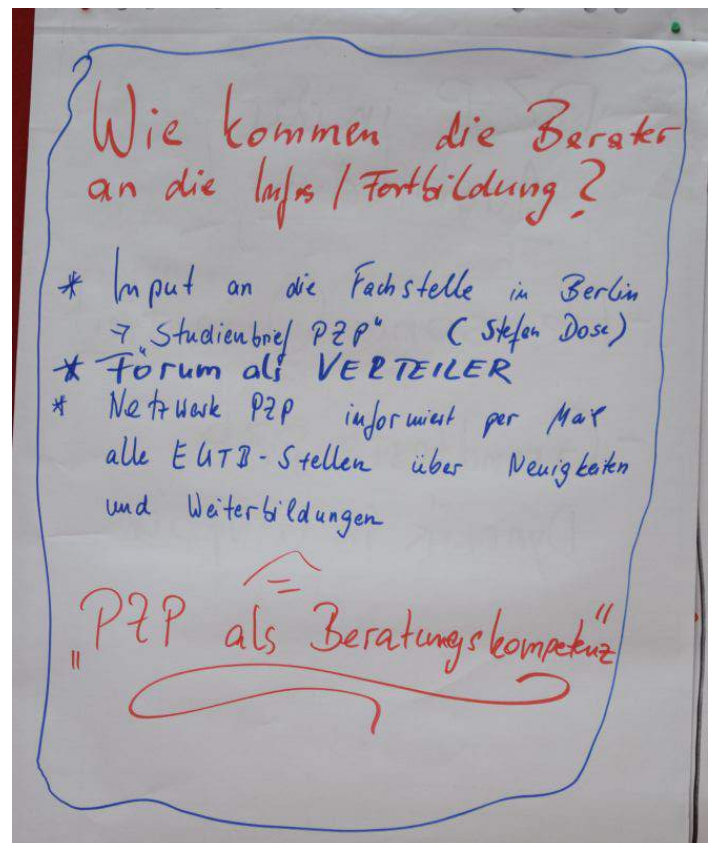 Wie kommen die Berater
an die Infos / Fortbildung?
* Input an die Fachstelle in Berlin
→ „Studienbrief PZP" (Stefan Dose)
* Forum als VERTEILER
* Netzwerk PZP informiert per Mail
alle EUTB-Stellen über Neuigkeiten
und Weiterbildungen
„PZP als Beratungskompetenz"